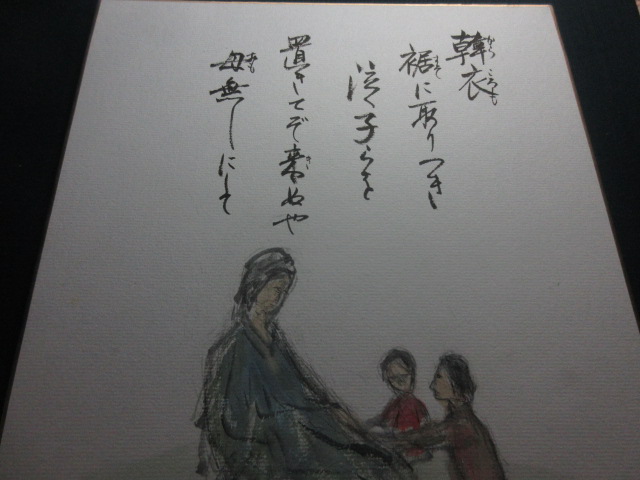 韓衣
裾に取りつき
泣く子らを
置きてぞ来ぬや
母無しにして